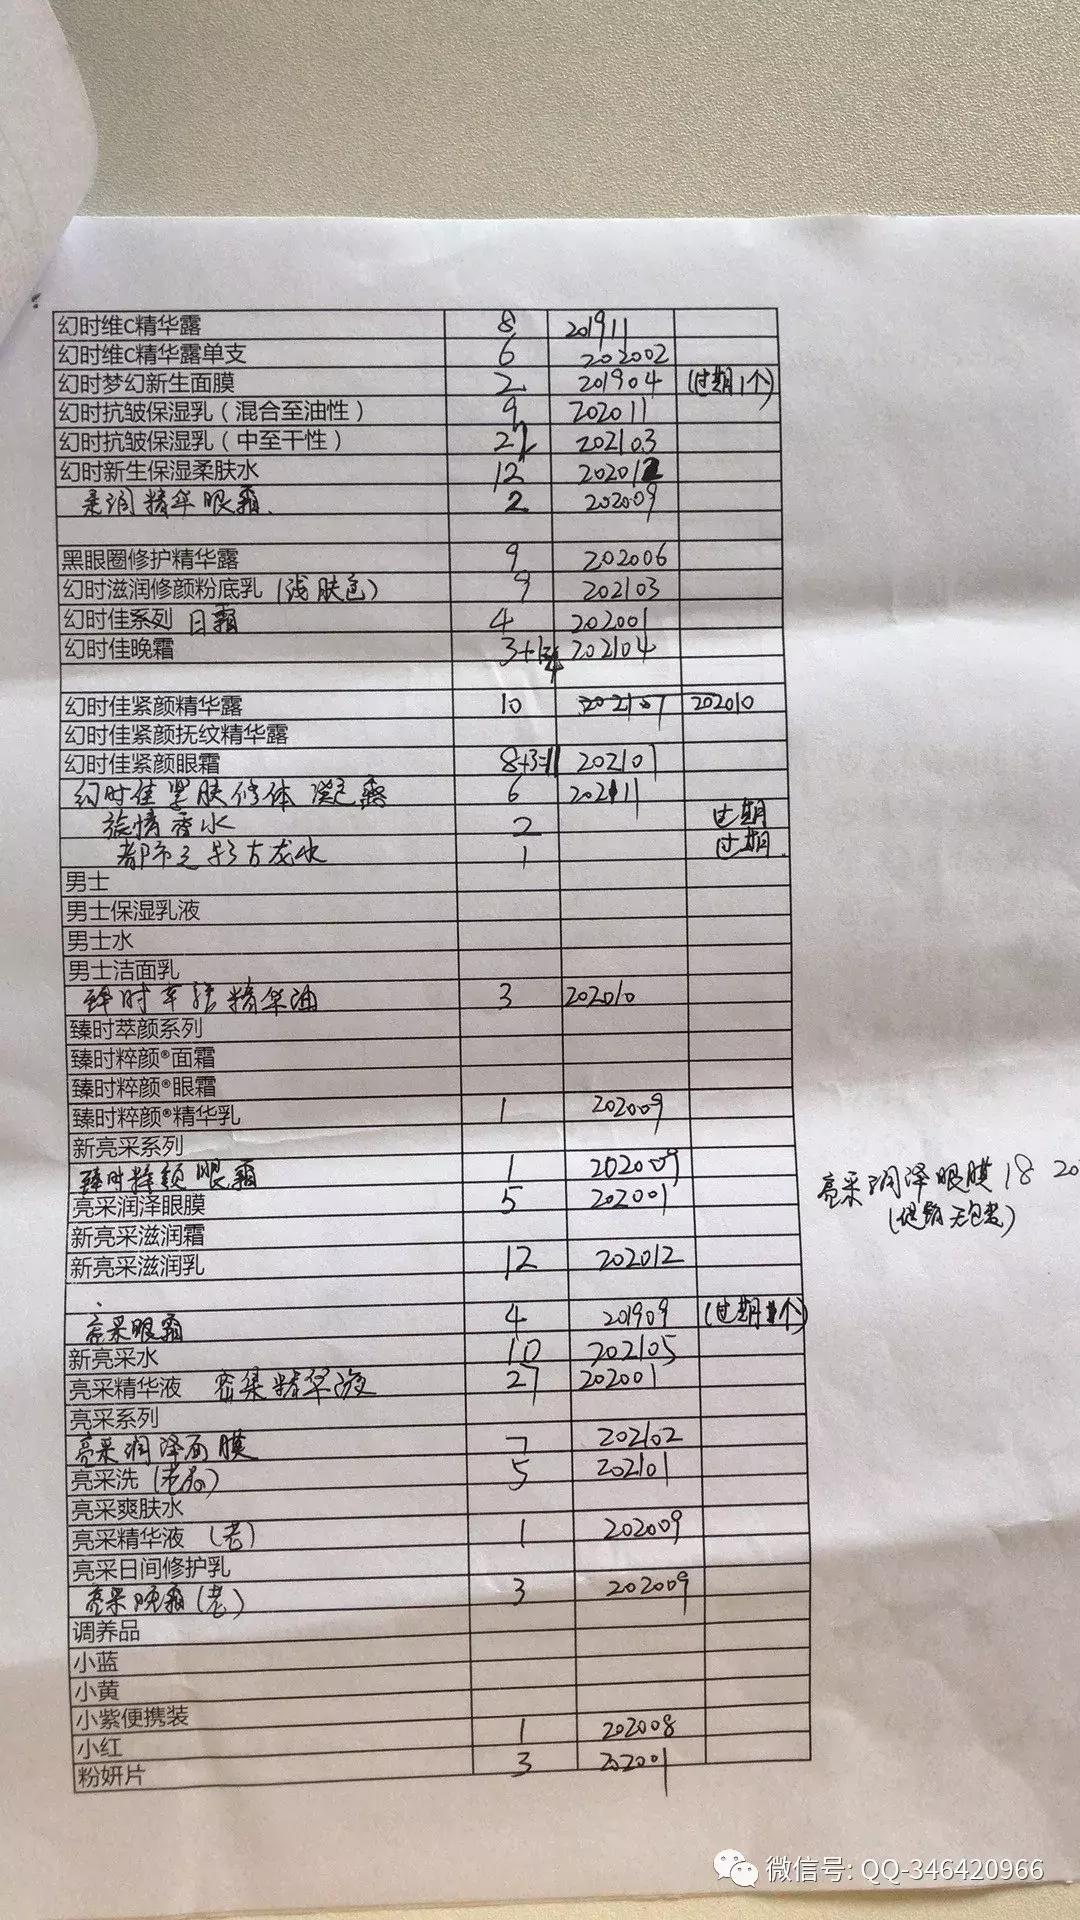 幻时维C精华露 8 201911
幻时维C精华露单支 6 202002
幻时梦幻新生面膜 2 201904 (过期1个)
幻时抗皱保湿乳（混合至油性） 9 202011
幻时抗皱保湿乳（中至干性） 202103
幻时新生保湿柔肤水 12 202012
柔润精华眼霜. 2 202009
黑眼圈修护精华露 9 202006
幻时滋润修颜粉底乳 (浅肤色) 9 202103
幻时佳系列 日霜 4 202001
幻时佳晚霜 202104
幻时佳紧颜精华露 10 202107 202010
幻时佳紧颜抚纹精华露
幻时佳紧颜眼霜 8+3=11 202101
幻时佳紧肤修体 露 6 202111
旋情香水 2 过期
都市之彩古龙水 1 过期.
男士
男士保湿乳液
男士水
男士洁面乳
臻时 精华油 3 202010
臻时萃颜系列
臻时粹颜®面霜
臻时粹颜®眼霜
臻时粹颜®精华乳 1 202009
新亮采系列
臻时粹颜眼霜 1 202009
亮采润泽眼膜 5 202001
亮采润泽眼膜 18 20
(促销无包装)
新亮采滋润霜
新亮采滋润乳 12 202012
亮采眼霜 4 201909 (过期1个)
新亮采水 10 202105
亮采精华液 密集精华液 27 202001
亮采系列
亮采润泽面膜 7 202102
亮采洗 5 202101
亮采爽肤水
亮采精华液 (老) 1 202009
亮采日间修护乳
亮采晚霜(老) 3 202009
调养品
小蓝
小黄
小紫便携装
小红 1 202008
粉妍片 3 202001
微信号: QQ-346420966